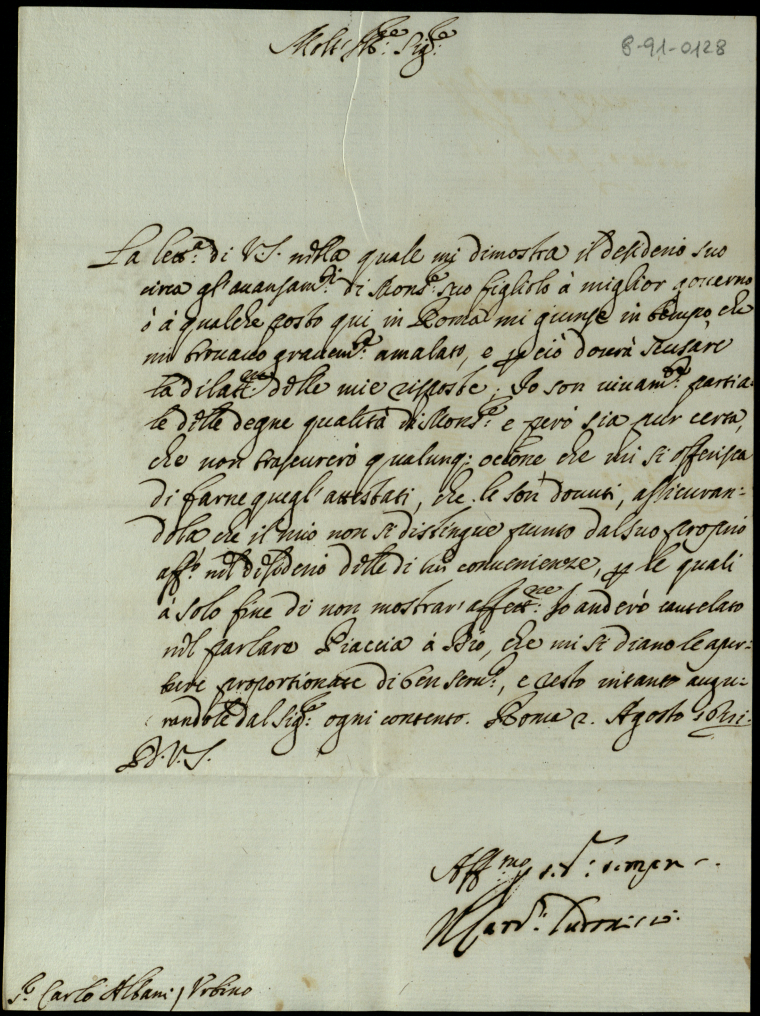 Molt' Ill.re Sig.re
8-91-0128
La lett.a di V.S. nella quale mi dimostra il desiderio suo
circa gl'auansam.ti di Mons.re suo figliolo à miglior gouerno
ò à qualche posto qui in Roma mi giunse in tempo, che
mi trouauo grauem.te amalato, e p ciò dourà scusare
la dilatt.ne delle mie risposte. Io son viuam.te partia-
le delle degne qualità di Mons.re e però sia pur certa,
che non trascurerò qualunq; occ.one, che mi si offerisca
di farne quegl'attestati, che le son douuti, assicuran-
dola che il mio non si distingue punto dal suo proprio
aff.o nel desiderio delle di lui conuenienze, p le quali
à solo fine di non mostrar' affett.ne Io anderò cautelato
nel parlare Piaccia à Dio, che mi si diano le aper-
ture proportionate di ben seru.o, e resto intanto augu-
randole dal Sig.re ogni contento. Roma 2. Agosto
D.V.S.
Aff.mo sempre
Il Card. Ludouisio.
S.r Carlo Albani / Vrbino